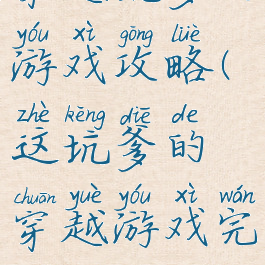 yóu xì gōng lüè
游戏攻略(
zhè kēng diē de
这坑爹的
chuān yuè yóu xì wán
穿越游戏完